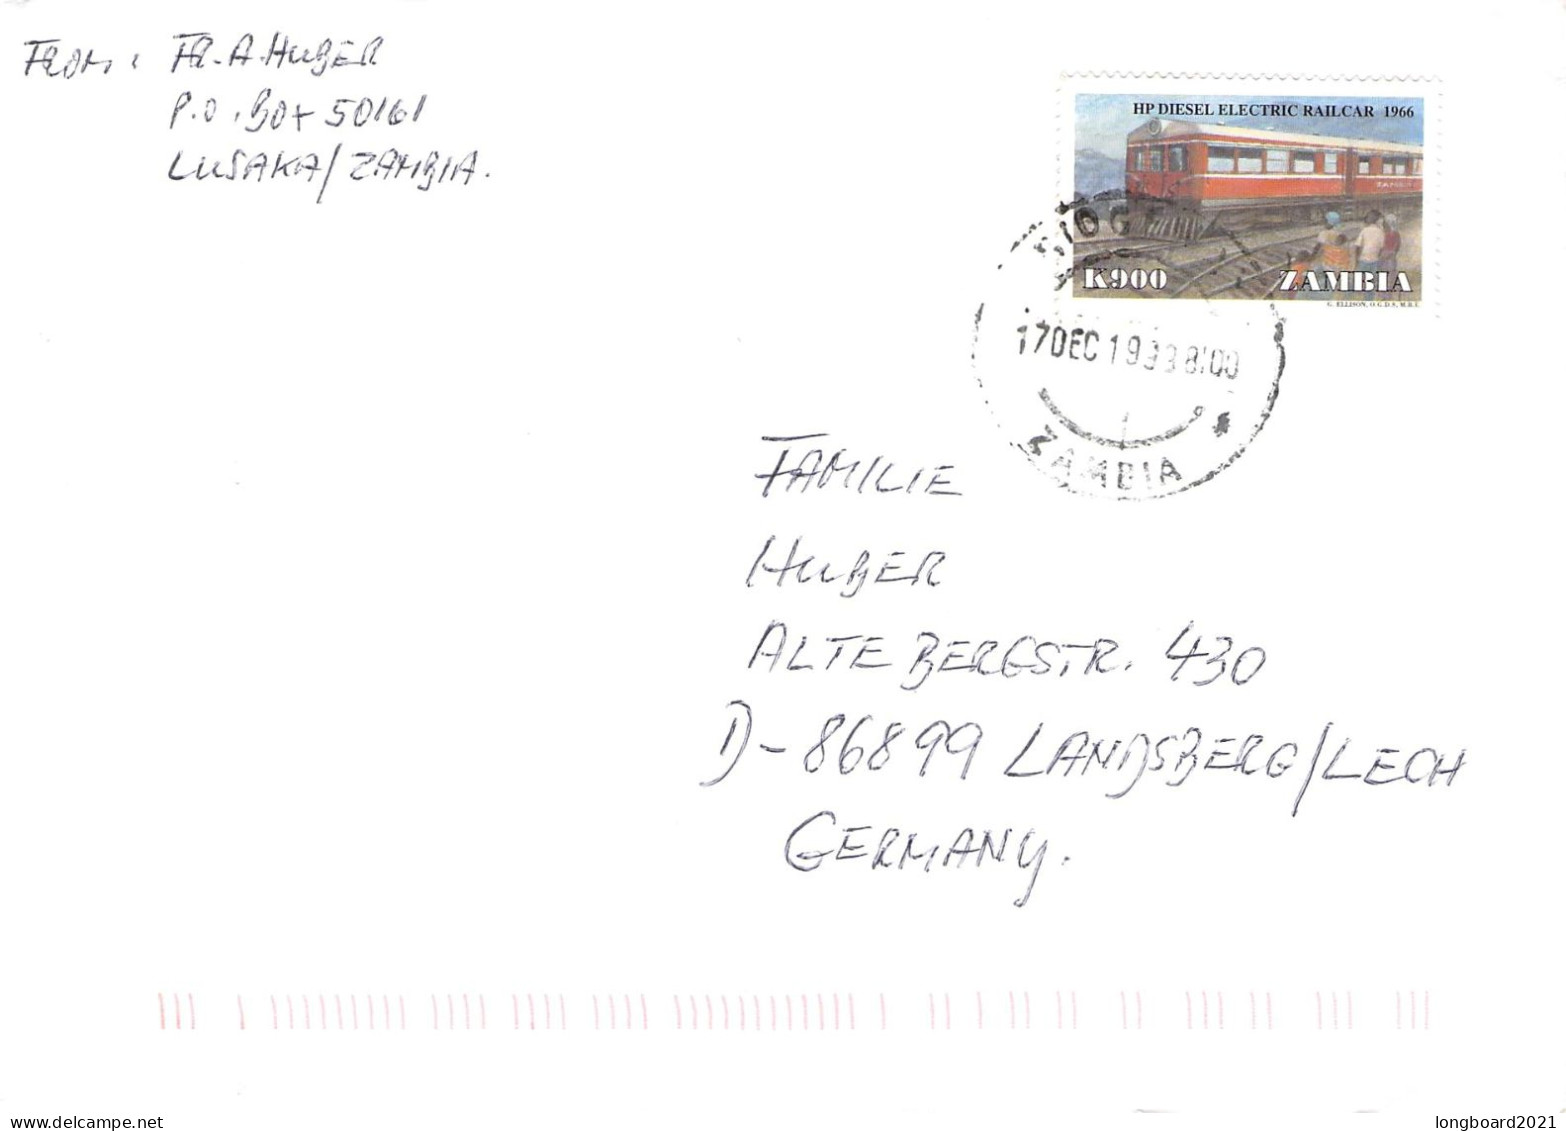 FROM: FR. A. HUBER
P.O. BOX 50161
LUSAKA/ZAMBIA.
HP DIESEL ELECTRIC RAILCAR 1966
K900 ZAMBIA
G. ELLISON, O.G.D.S, M.B.E.
17DEC1993 8:00
ZAMBIA
FAMILIE
HUBER
ALTE BERGSTR. 430
D-86899 LANDSBERG/LECH
GERMANY.
www.delcampe.net
longboard2021